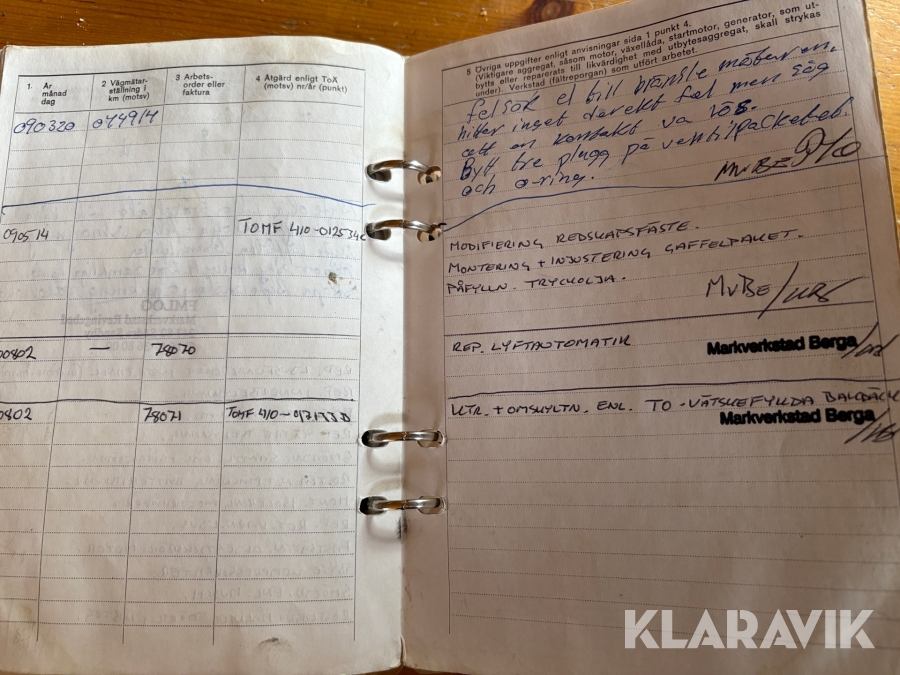 1. År månad dag
2 Vägmätar-ställning i km (motsv)
3 Arbets-order eller faktura
4 Åtgärd enligt ToX (motsv) nr/år (punkt)
090320 044914
090514 TOMF 410-012534
00802 — 78070
0802 78071 TOMF 410-017173
5 Övriga uppgifter enligt anvisningar sida 1 punkt 4.
(Viktigare aggregat, såsom motor, växellåda, startmotor, generator, som ut-
bytts eller reparerats till likvärdighet med utbytesaggregat, skall strykas
under). Verkstad (fältreporgan) som utfört arbetet.
felsök el till bränsle mätaren,
hittar inget derekt fel men såg
att en kontakt va lös.
Bytt tre plugg på ventilpacketet
och o-ring. MVBE
MODIFIERING REDSKAPSFÄSTE.
MONTERING + INJUSTERING GAFFELPAKET.
PÅFYLLN. TRYCKOLJA.
MVBE
REP. LYFTAUTOMATIK Markverkstad Berga
KTR. + OMSKYLTN. ENL. TO - VÄTSKEFYLLDA BAKDÄCK
Markverkstad Berga
KLARAVIK